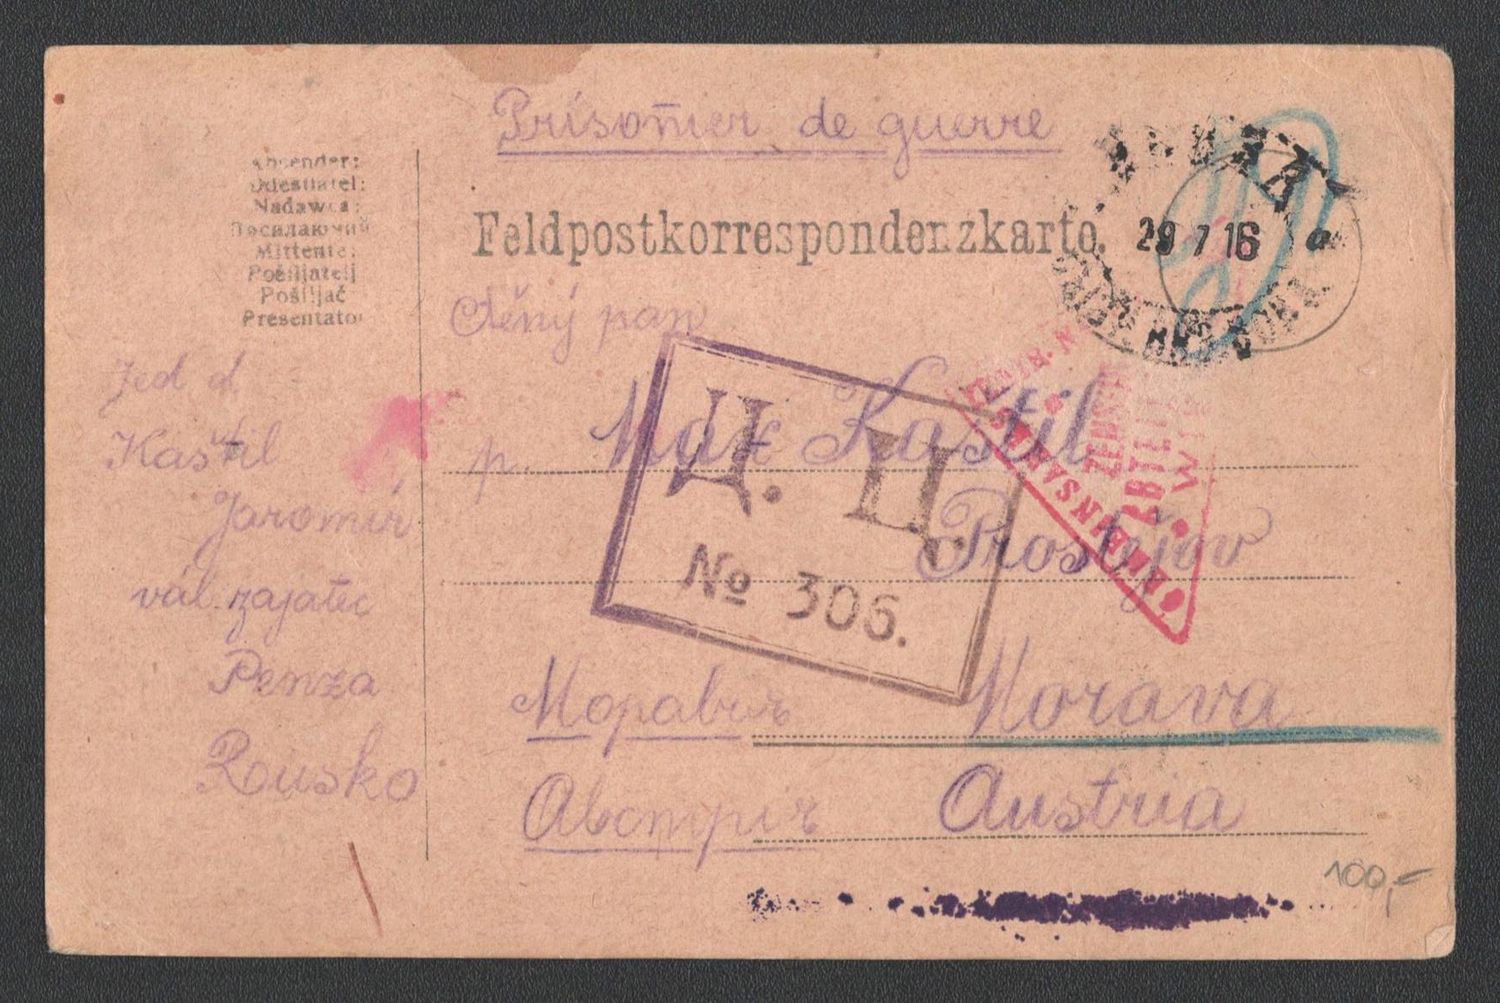 Prisoñier de guerre
Absender:
Odesílatel:
Nadawca:
Посилаючий
Mittente:
Pošiljatelj
Pošiljač
Presentator
Feldpostkorrespondenzkarte.
29 7 16
a
Ctěný pan
p. Max Kaštil
Prostějov
Morava
Austria
Д. Ц.
№ 306.
Jed d.
Kaštil
Jaromír
vál. zajatec
Penza
Rusko
100,-